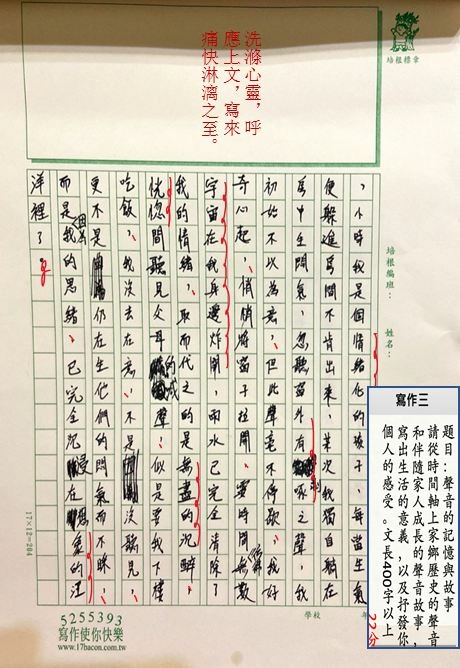 洗滌心靈，呼
應上文，寫來
痛快淋漓之至。
培根標章
培根編班：
姓名：
，小時我是個情緒化的孩子，每當生氣
便躲進房間不肯出來，某次我獨自躺在
房中生悶氣，忽聽窗外有啄之聲，我
初始不以為意，但此聲毫不停歇，我好
奇心起，悄悄將窗子拉開，霎時間無數
宇宙在我身邊炸開，雨水已完全清除了
我的情緒，取而代之的是無盡的沉醉，
恍惚間聽見父母的喊聲，似是要我下樓
吃飯，我沒去在意，不是沒聽見，
更不是仍在生他們的悶氣而不睬，
而是因為我的思緒，已完全沉浸在的汪
洋裡了。
寫作三
題目：聲音的記憶與故事
請從時間軸上家鄉歷史的聲音
和伴隨家人成長的聲音故事，
寫出生活的意義，以及抒發你
個人的感受。文長400字以上
22分
學校
年
17×12=204
5255393
寫作使你快樂
www.17bacon.com.tw